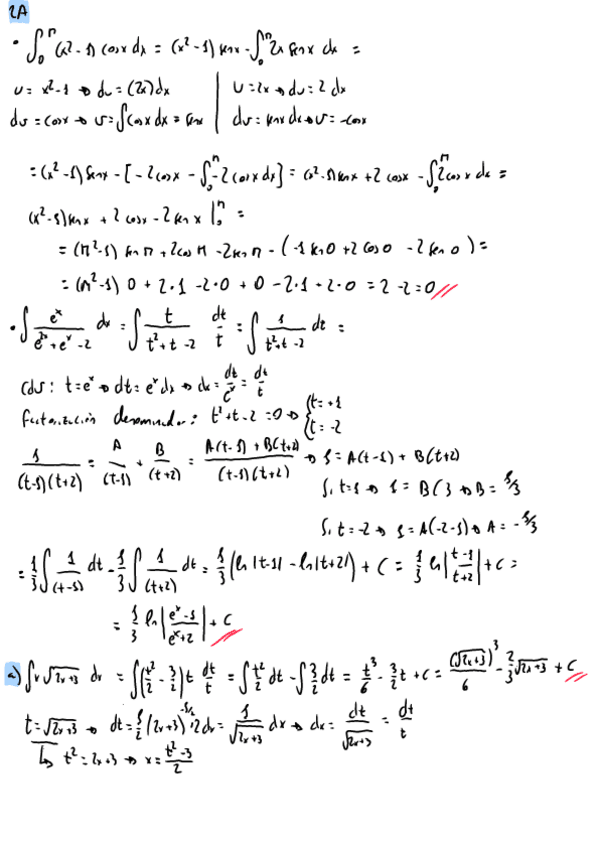 2A
• ∫₀^π (x²-1) cosx dx = (x²-1) senx - ∫₀^π 2x senx dx =
u = x²-1 → du = (2x)dx | u = 2x → du = 2 dx
dv = cosx → v = ∫cosx dx = senx | dv = senx dx → v = -cosx
= (x²-1) senx - [-2cosx - ∫₀^π -2cosx dx] = (x²-1)senx + 2 cosx - ∫₀^π 2cosx dx =
(x²-1)senx + 2 cosx - 2senx |₀^π =
= (π²-1) sen π + 2cos π - 2sen π - (-1 sen0 + 2cos0 - 2sen0) =
= (π²-1) 0 + 2·1 - 2·0 + 0 - 2·1 + 2·0 = 2 - 2 = 0
• ∫ eˣ/(e²ˣ+eˣ-2) dx = ∫ t/(t²+t-2) dt/t = ∫ 1/(t²+t-2) dt =
CdV: t=eˣ → dt = eˣ dx → dx = dt/eˣ = dt/t
Factorización denominador: t²+t-2 = 0 → { t=+1 t=-2
1/((t-1)(t+2)) = A/(t-1) + B/(t+2) = (A(t-1) + B(t+2))/((t-1)(t+2)) → 1 = A(t-1) + B(t+2)
Si t=1 → 1 = B(3 → B = 1/3
Si t=-2 → 1 = A(-2-1) → A = -1/3
= 1/3 ∫ 1/(t-1) dt - 1/3 ∫ 1/(t+2) dt = 1/3 (ln|t-1| - ln|t+2|) + C = 1/3 ln|(t-1)/(t+2)| + C =
= 1/3 ln|(eˣ-1)/(eˣ+2)| + C
a) ∫x√(2x+3) dx = ∫(t²/2 - 3/2)t dt/t = ∫t²/2 dt - ∫3/2 dt = t³/6 - 3/2 t + C = (√(2x+3))³/6 - 2/3 √(2x+3) + C
t = √(2x+3) → dt = 1/2 (2x+3)^(-1/2) · 2 dx = 1/√(2x+3) dx → dx = dt/√(2x+3) = dt/t
↳ t² = 2x+3 → x = (t²-3)/2